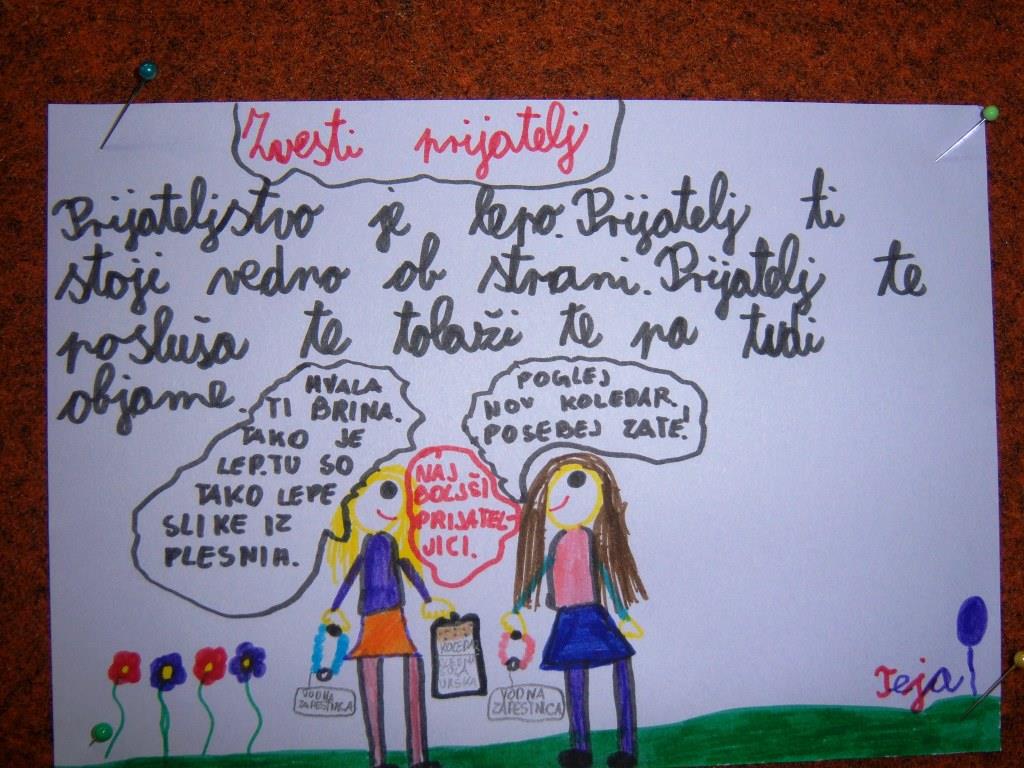 Zvesti prijatelj
Prijateljstvo je lepo. Prijatelj ti
stoji vedno ob strani. Prijatelj te
posluša te tolaži te pa tudi
objame.
HVALA
TI BRINA.
TAKO JE
LEP.TU SO
TAKO LEPE
SLIKE IZ
PLESNIH.
POGLEJ
NOV KOLEDAR,
POSEBEJ ZATE!
NAJ
BOLJŠI
PRIJATEL-
JICI.
KOLEDAR
VODNA
ZAPESTNICA
VODNA
ZAPESTNICA
Teja